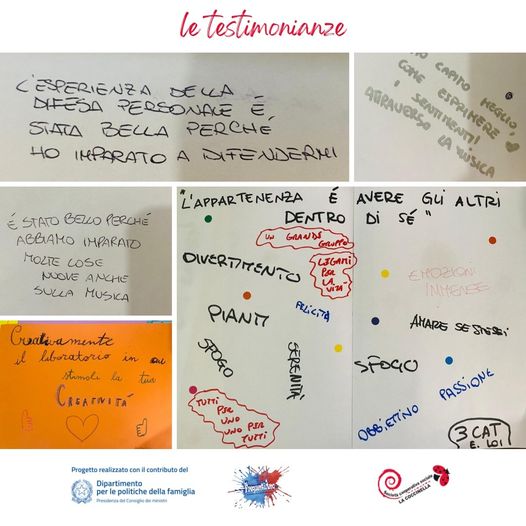 le testimonianze
L'ESPERIENZA DELLA
DIFESA PERSONALE É
STATA BELLA PERCHÉ
HO IMPARATO A DIFENDERMI
HO CAPITO MEGLIO,
COME ESPRIMERE
I SENTIMENTI
ATTRAVERSO LA MUSICA
É STATO BELLO PERCHÉ
ABBIAMO IMPARATO
MOLTE COSE
NUOVE ANCHE
SULLA MUSICA
Creativamente
il laboratorio in cui
stimoli la tua
CREATIVITÁ
"L'APPARTENENZA É AVERE GLI ALTRI
DENTRO DI SÉ"
UN GRANDE
GRUPPO
DIVERTIMENTO
LEGAMI
PER
LA
VITA
FELICITÀ
PIANTI
SFOGO
SERENITÀ
TUTTI
PER
UNO
UNO PER
TUTTI
EMOZIONI
IMMENSE
AMARE SE STESSI
SFOGO
PASSIONE
OBBIETTIVO
3 CAT
E. LOI
Progetto realizzato con il contributo del
Dipartimento
per le politiche della famiglia
Presidenza del Consiglio dei ministri
Società cooperativa sociale
LA COCCINELLA